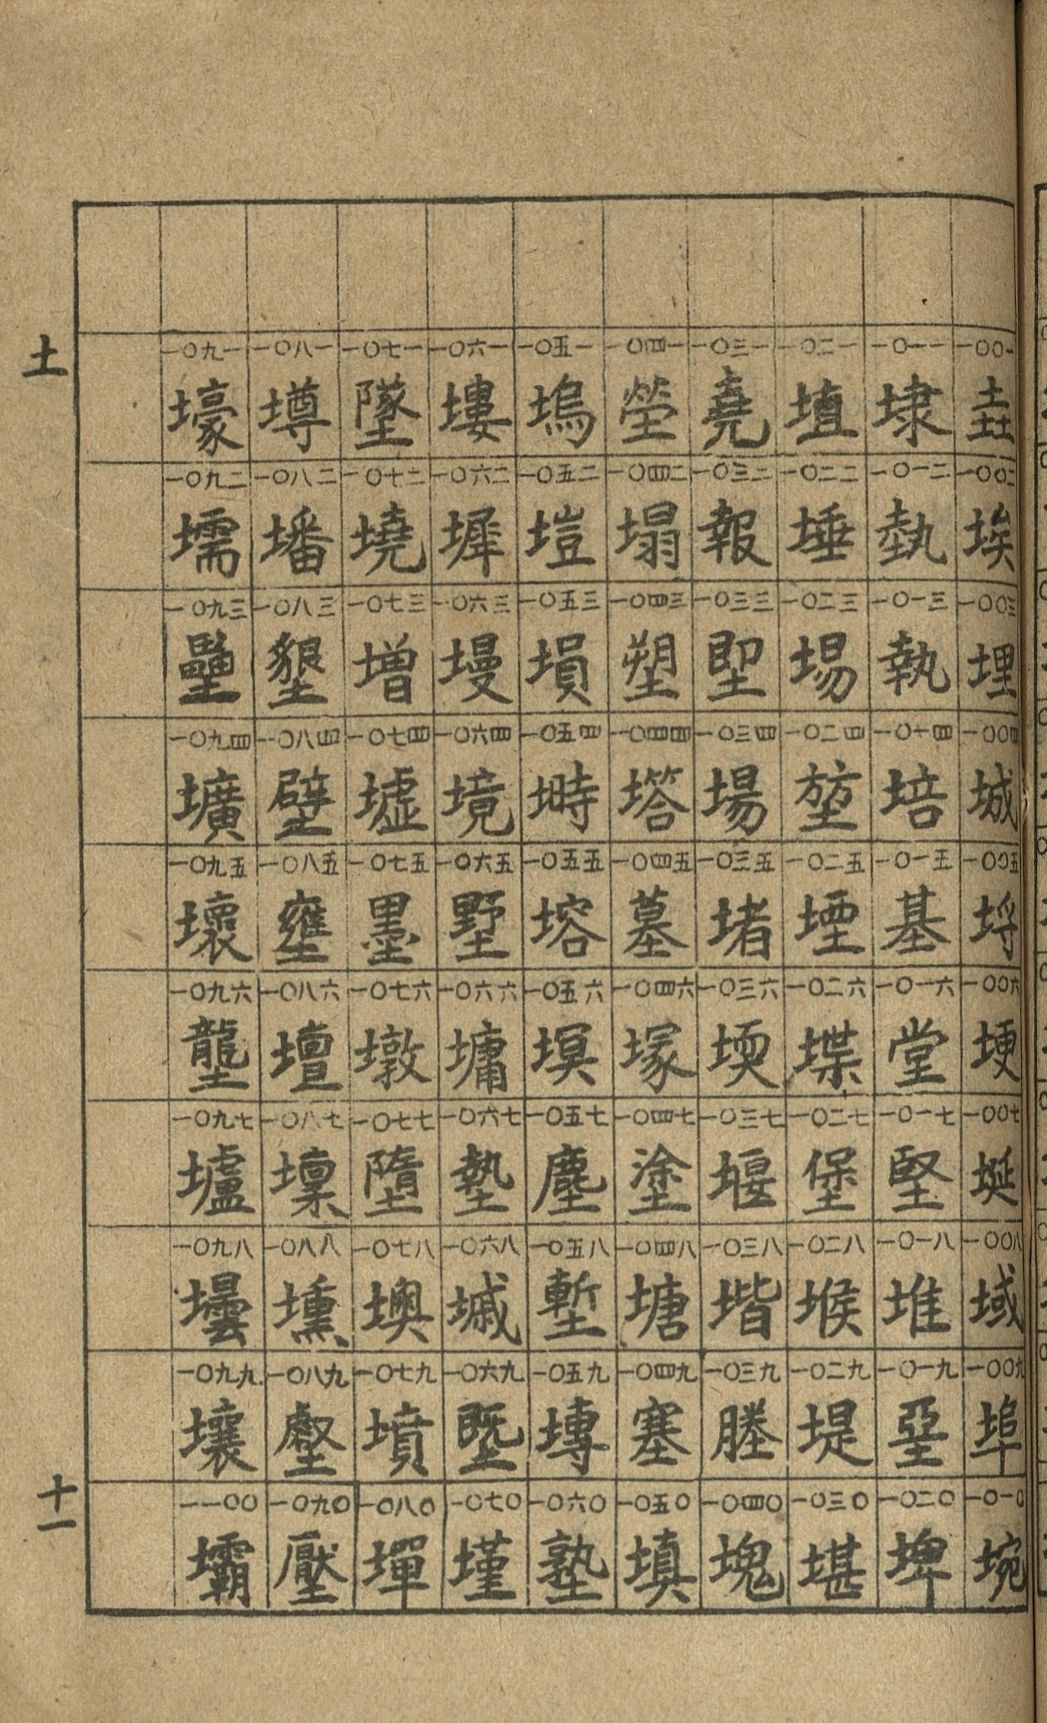 土
一〇〇一 垚
一〇〇二 埃
一〇〇三 埋
一〇〇四 城
一〇〇五 埒
一〇〇六 埂
一〇〇七 埏
一〇〇八 域
一〇〇九 埠
一〇一〇 埦
一〇一一 埭
一〇一二 埶
一〇一三 執
一〇一四 培
一〇一五 基
一〇一六 堂
一〇一七 堅
一〇一八 堆
一〇一九 堊
一〇二〇 埤
一〇二一 埴
一〇二二 埵
一〇二三 埸
一〇二四 堃
一〇二五 堙
一〇二六 堞
一〇二七 堡
一〇二八 堠
一〇二九 堤
一〇三〇 堪
一〇三一 堯
一〇三二 報
一〇三三 堲
一〇三四 場
一〇三五 堵
一〇三六 堧
一〇三七 堰
一〇三八 堦
一〇三九 塍
一〇四〇 塊
一〇四一 塋
一〇四二 塌
一〇四三 塑
一〇四四 塔
一〇四五 墓
一〇四六 塚
一〇四七 塗
一〇四八 塘
一〇四九 塞
一〇五〇 填
一〇五一 塢
一〇五二 塏
一〇五三 塤
一〇五四 塒
一〇五五 塎
一〇五六 塓
一〇五七 塵
一〇五八 塹
一〇五九 塼
一〇六〇 塾
一〇六一 塿
一〇六二 墀
一〇六三 墁
一〇六四 境
一〇六五 墅
一〇六六 墉
一〇六七 墊
一〇六八 墄
一〇六九 墍
一〇七〇 墐
一〇七一 墜
一〇七二 墝
一〇七三 增
一〇七四 墟
一〇七五 墨
一〇七六 墩
一〇七七 墮
一〇七八 墺
一〇七九 墳
一〇八〇 墠
一〇八一 墫
一〇八二 墦
一〇八三 墾
一〇八四 壁
一〇八五 壅
一〇八六 壇
一〇八七 壈
一〇八八 壎
一〇八九 壑
一〇九〇 壓
一〇九一 壕
一〇九二 壖
一〇九三 壘
一〇九四 壙
一〇九五 壞
一〇九六 壟
一〇九七 壚
一〇九八 壜
一〇九九 壤
一一〇〇 壩
十一